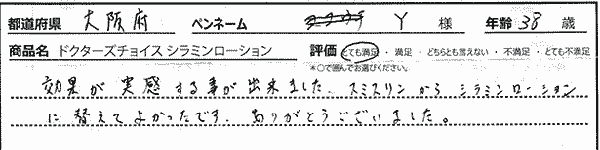 都道府県 大阪府 ペンネーム Y 様 年齢 38 歳
商品名 ドクターズチョイス シラミンローション 評価 とても満足 ・ 満足 ・ どちらとも言えない ・ 不満足 ・ とても不満足
*○で囲んでお選びください。
効果が実感する事が出来ました。スミスリンからシラミンローション
に替えてよかったです。ありがとうございました。